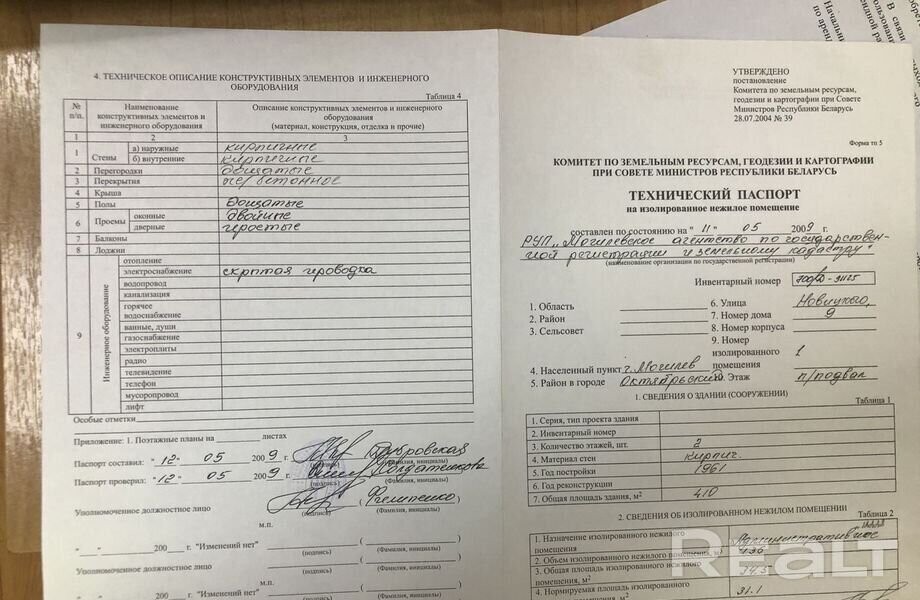 4. ТЕХНИЧЕСКОЕ ОПИСАНИЕ КОНСТРУКТИВНЫХ ЭЛЕМЕНТОВ И ИНЖЕНЕРНОГО
ОБОРУДОВАНИЯ
Таблица 4
№ п/п. Наименование конструктивных элементов и инженерного оборудования Описание конструктивных элементов и инженерного оборудования (материал, конструкция, отделка и прочие)
1 2 3
1 Стены а) наружные кирпичные
б) внутренние кирпичные
2 Перегородки дощатые
3 Перекрытия железобетонное
4 Крыша
5 Полы Дощатые
6 Проемы оконные двойные
дверные простые
7 Балконы
8 Лоджии
9 Инженерное оборудование отопление
электроснабжение скрытая проводка
водопровод
канализация
горячее
водоснабжение
ванные, души
газоснабжение
электроплиты
радио
телевидение
телефон
мусоропровод
лифт
Особые отметки
Приложение: 1. Поэтажные планы на ____ листах
Паспорт составил: "12" 05 2009 г. Дубровская
(Фамилия, инициалы)
Паспорт проверил: "12" 05 2009 г. Солдатенкова
(подпись) (Фамилия, инициалы)
Уполномоченное должностное лицо
(подпись) (Фамилия, инициалы)
м.п.
"___" ____ 200__ г. "Изменений нет" ( )
(подпись) (Фамилия, инициалы)
Уполномоченное должностное лицо ( )
(подпись) (Фамилия, инициалы)
м.п.
"___" ____ 200__ г. "Изменений нет" ( )
В связи
Начальни
по аренд
УТВЕРЖДЕНО
постановление
Комитета по земельным ресурсам,
геодезии и картографии при Совете
Министров Республики Беларусь
28.07.2004 № 39
Форма тп 5
КОМИТЕТ ПО ЗЕМЕЛЬНЫМ РЕСУРСАМ, ГЕОДЕЗИИ И КАРТОГРАФИИ
ПРИ СОВЕТЕ МИНИСТРОВ РЕСПУБЛИКИ БЕЛАРУСЬ
ТЕХНИЧЕСКИЙ ПАСПОРТ
на изолированное нежилое помещение
составлен по состоянию на "11" 05 2009 г.
РУП "Могилевское агентство по государствен-
ной регистрации и земельному кадастру"
(наименование организации по государственной регистрации)
Инвентарный номер
1. Область
2. Район
3. Сельсовет
4. Населенный пункт г. Могилев
5. Район в городе Октябрьский
6. Улица Новицкого,
7. Номер дома 9
8. Номер корпуса
9. Номер
изолированного 1
помещения
10. Этаж п/подвал
1. СВЕДЕНИЯ О ЗДАНИИ (СООРУЖЕНИИ)
Таблица 1
1. Серия, тип проекта здания
2. Инвентарный номер
3. Количество этажей, шт. 2
4. Материал стен кирпич.
5. Год постройки 1961
6. Год реконструкции
7. Общая площадь здания, м² 410
2. СВЕДЕНИЯ ОБ ИЗОЛИРОВАННОМ НЕЖИЛОМ ПОМЕЩЕНИИ
Таблица 2
1. Назначение изолированного нежилого помещения Административное
2. Объем изолированного нежилого помещения, м³
3. Общая площадь изолированного нежилого помещения, м²
4. Нормируемая площадь изолированного 31.1
Realt